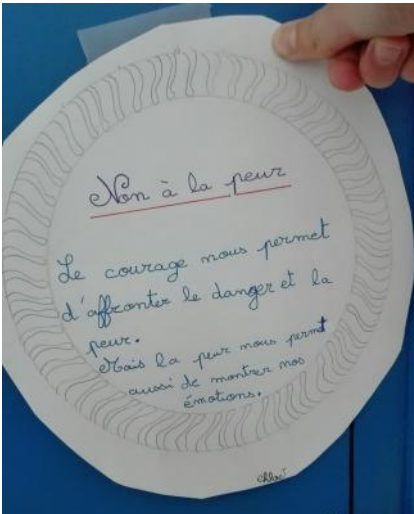 Non à la peur
Le courage nous permet
d'affronter le danger et la
peur.
Mais la peur nous permet
aussi de montrer nos
émotions.
Chloé